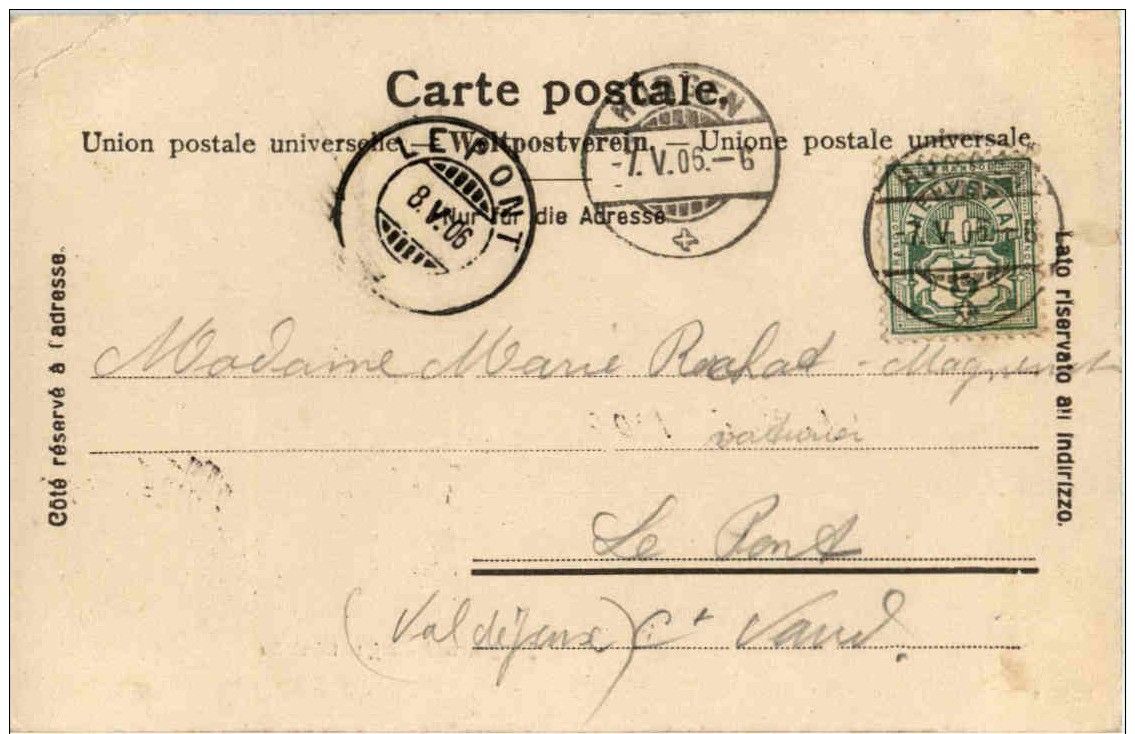 Carte postale.
Union postale universelle. — Weltpostverein. — Unione postale universale.
Nur für die Adresse
LE PONT
8.V.06
-7.V.06.-6
HELVETIA
-7.V.06.-6
Côté réservé à l'adresse.
Lato riservato all indirizzo.
Madame Marie Rochat -
voiturier
Le Pont
(Val de joux) Ct Vaud.